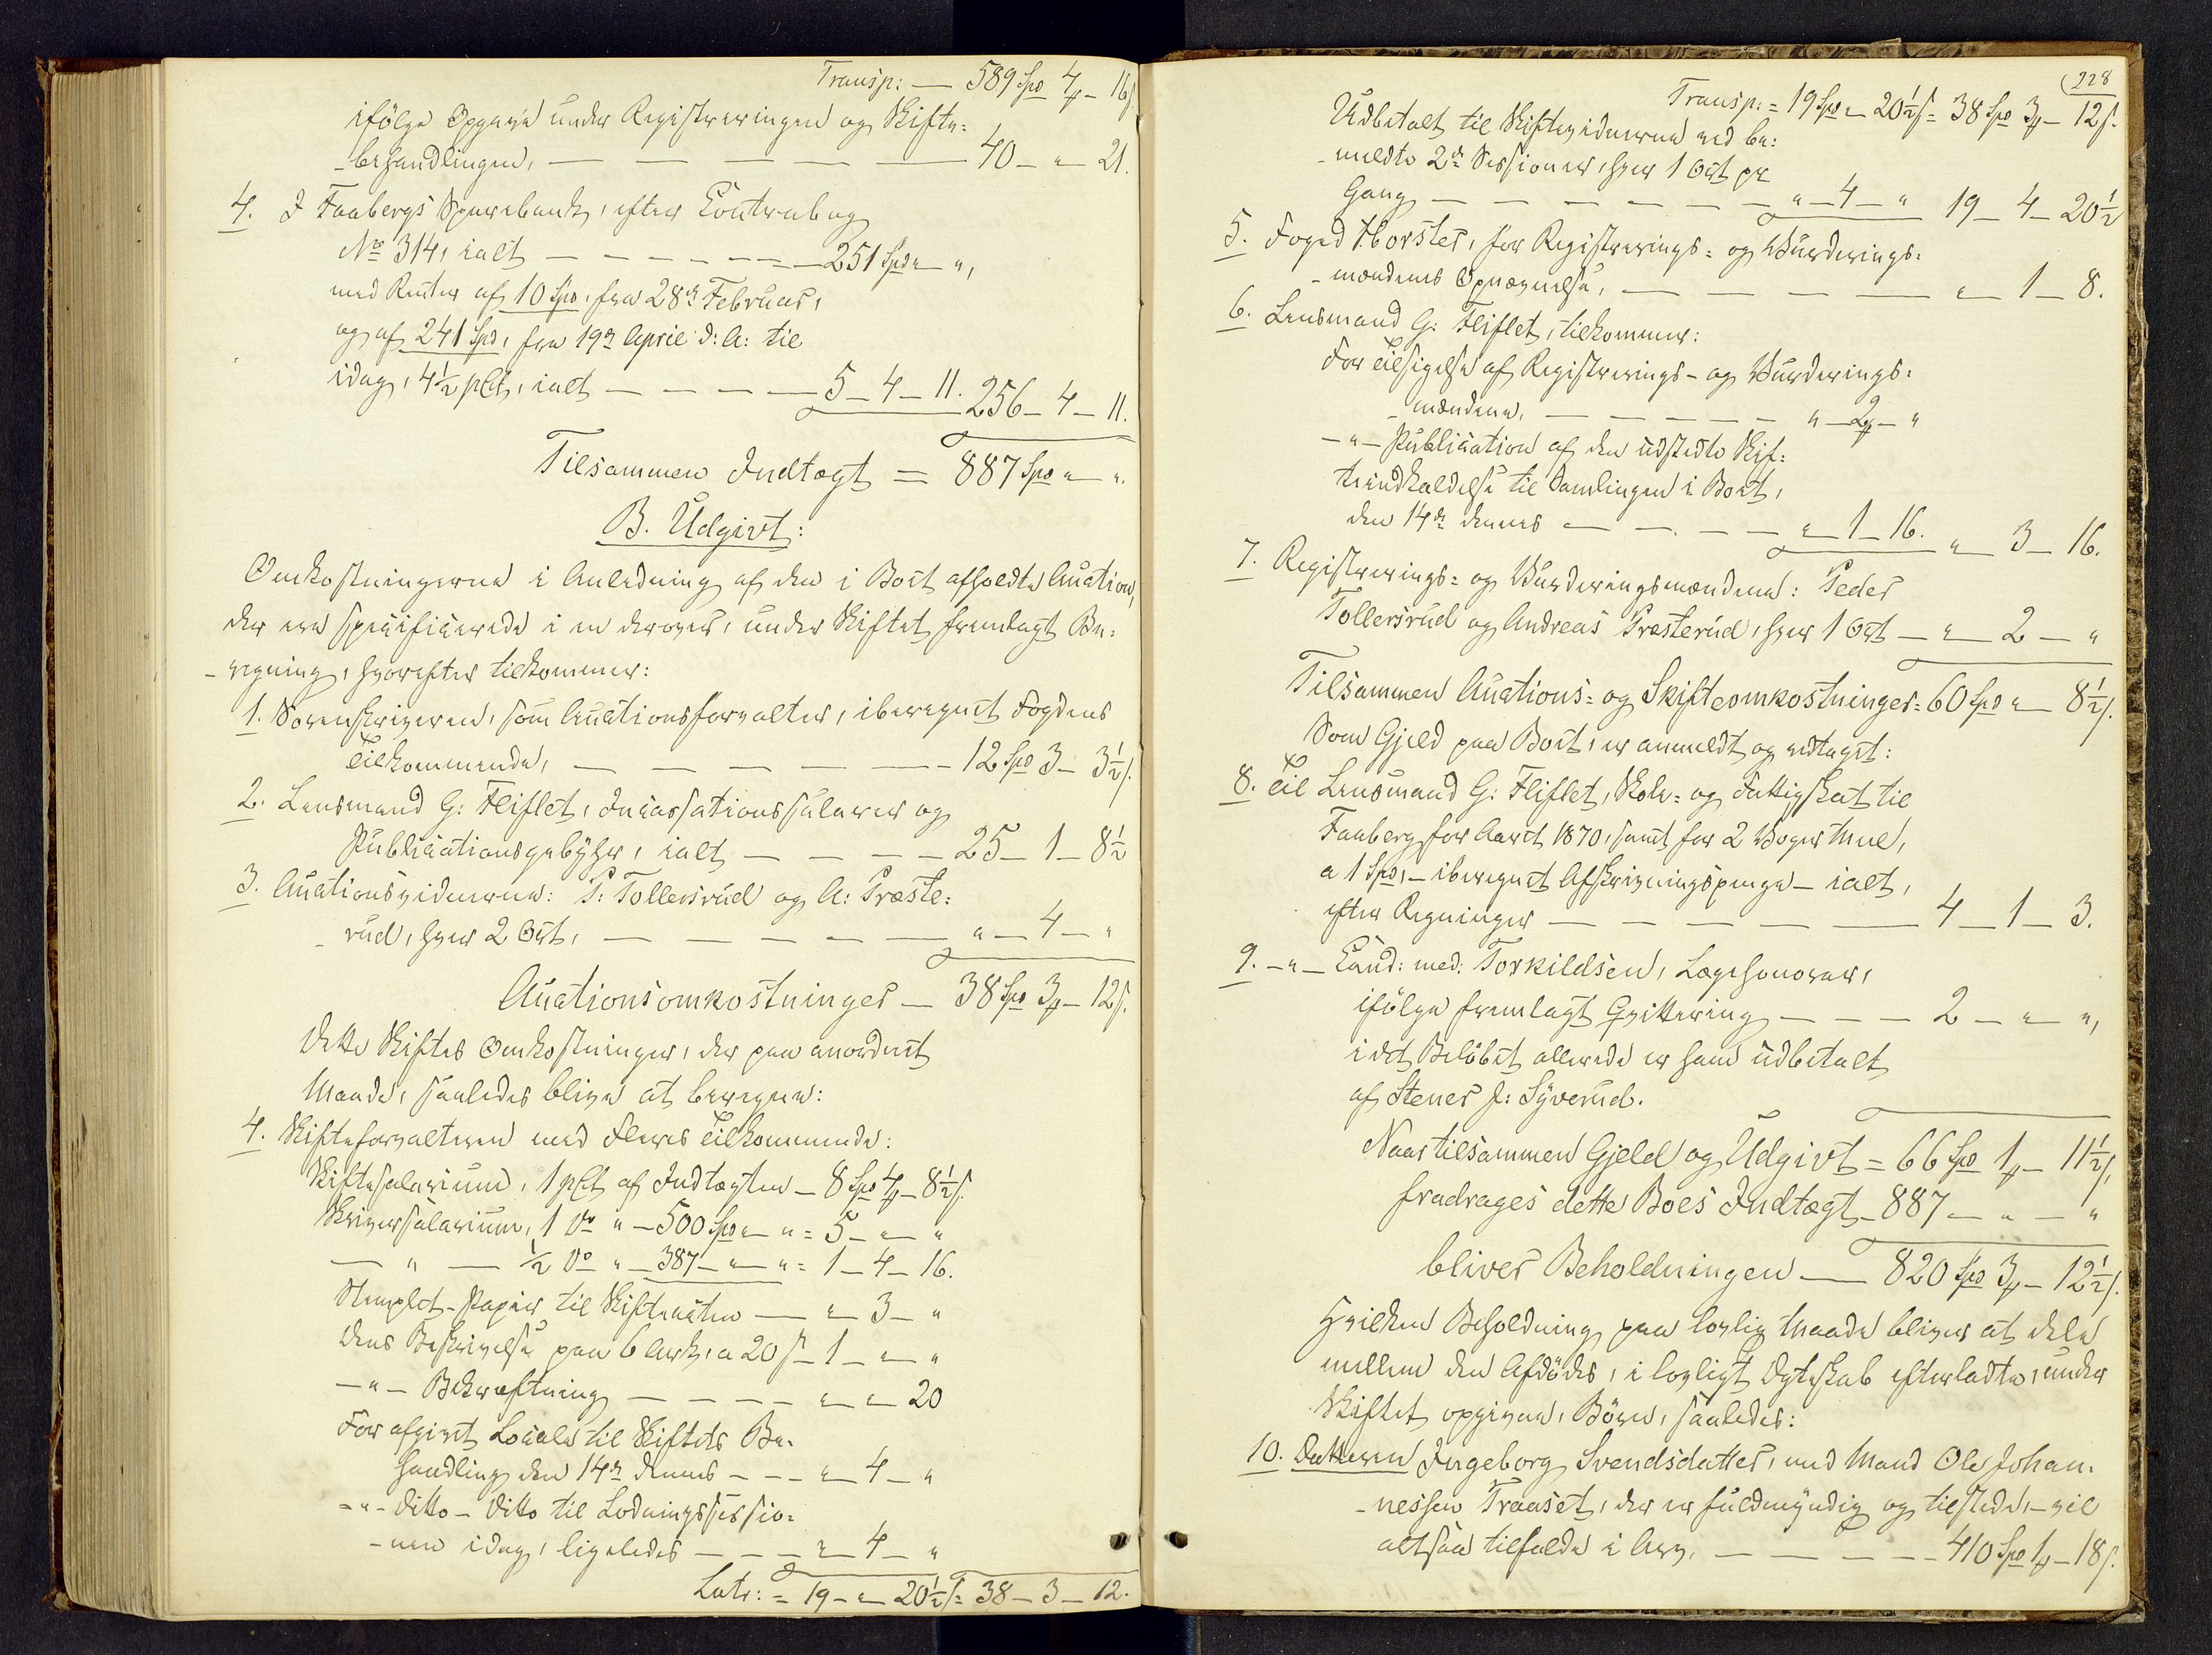 Transp: — 589 Spd 4 # - 16 s.
ifölge Opgave under Registreringen og Skifte-
-behandlingen, — — — — — 40 - " - 21.
4. I Faabergs Sparebank, efter Contrabog
No 314, ialt — — — — — — 251 Spd " - ",
med Renter af 10 Spd, fra 28de Februar,
og af 241 Spd, fra 19de April d: A: til
idag, 4½ pCt, ialt — — — — 5 - 4 - 11. 256 - 4 - 11.
Tilsammen Indtægt = 887 Spd " - ".
B. Udgivt:
Omkostningerne i Anledning af den i Boet afholdte Auction,
der ere specificerede i en derover, under Skiftet fremlagt Be-
-regning, hvorefter tilkommer:
1. Sorenskriveren, som Auctionsforvalter, iberegnet Fogdens
Tilkommende, — — — — — 12 Spd 3 - 3½ s.
2. Lensmand G: Fliflet, Incassationssalarer og
Publicationsgebyhr, ialt — — — — 25 - 1 - 8½
3. Auctionsvidnerne: P: Tollersrud og A: Præste-
-rud, hver 2 Ort, — — — — — " - 4 - "
Auctionsomkostninger — 38 Spd 3 # - 12 s.
Dette Skiftes Omkostninger, der paa anordnet
Maade, saaledes blive at beregne:
4. Skifteforvalteren med Fleres Tilkommende:
Skiftesalarium, 1 pCt af Indtægten - 8 Spd 4 # - 8½ s.
Skriversalarium, 1 do " - 500 Spd " - " = 5 - " - "
— " — ½ do " - 387 - " - " = 1 - 4 - 16.
Stemplet-Papir til Skifteacten — " - 3 - "
Dens Beskrivelse paa 6 Ark, a 20 s - 1 - " - "
- " - Bekræftning — — — — " - " - 20
For afgivet Locale til Skiftets Be-
handling den 14de dennes - - - " - 4 - "
- " - Ditto - Ditto til Lodningssessio-
-nen idag, ligeledes — — — " - 4 - "
Latr: = 19 - " - 20½ s = 38 - 3 - 12.
228
Transp: = 19 Spd " - 20½ s = 38 Spd 3 # - 12 s.
Udbetalt til Skiftevidnerne ved be-
-meldte 2de Sessioner, hver 1 Ort pr
Gang — — — — — — " - 4 - " 19 - 4 - 20½
5. Foged Horster, for Registrerings- og Vurderings-
-mændenes Opnævnelse, — — — — " - 1 - 8.
6. Lensmand G: Fliflet, tilkommer:
For Tilsigelse af Registrerings- og Vurderings-
-mændene, — — — — — " - 2 # - "
- " - Publication af den udstedte Skif-
teindkaldelse til Samlingen i Boet,
den 14de dennes — — — — " - 1 - 16. " - 3 - 16.
7. Registrerings- og Vurderingsmændene: Peder
Tollersrud og Andreas Præsterud, hver 1 Ort — " - 2 - "
Tilsammen Auctions- og Skifteomkostninger = 60 Spd " - 8½ s.
Som Gjeld paa Boet, er anmeldt og vedtaget:
8. Til Lensmand G: Fliflet, Skole- og Fattigskat til
Faaberg for Aaret 1870, samt for 2 Voger Meel,
a 1 Spd, - iberegnet Afskrivningspenge - ialt,
efter Regninger — — — — — 4 - 1 - 3.
9. - " - Cand: med: Torkildsen, Lægehonorar,
ifölge fremlagt Qvittering — — — 2 - " - ",
idet Belöbet allerede er ham udbetalt
af Stener J: Syverud.
Naar tilsammen Gjeld og Udgivt = 66 Spd 1 # - 11½ s,
fradrages dette Boes Indtægt - 887 - " - "
bliver Beholdningen — 820 Spd 3 # - 12½ s.
Hvilken Beholdning paa lovlig Maade bliver at dele
mellem den Afdödes, i lovligt Egteskab efterladte, under
Skiftet opgivne, Börn, saaledes:
10. Datteren Ingeborg Svendsdatter, med Mand Ole Johan-
-nessen Traaset, der er fuldmyndig og tilstede, - vil
altsaa tilfalde i Arv, — — — — 410 Spd 1 # - 18 s.